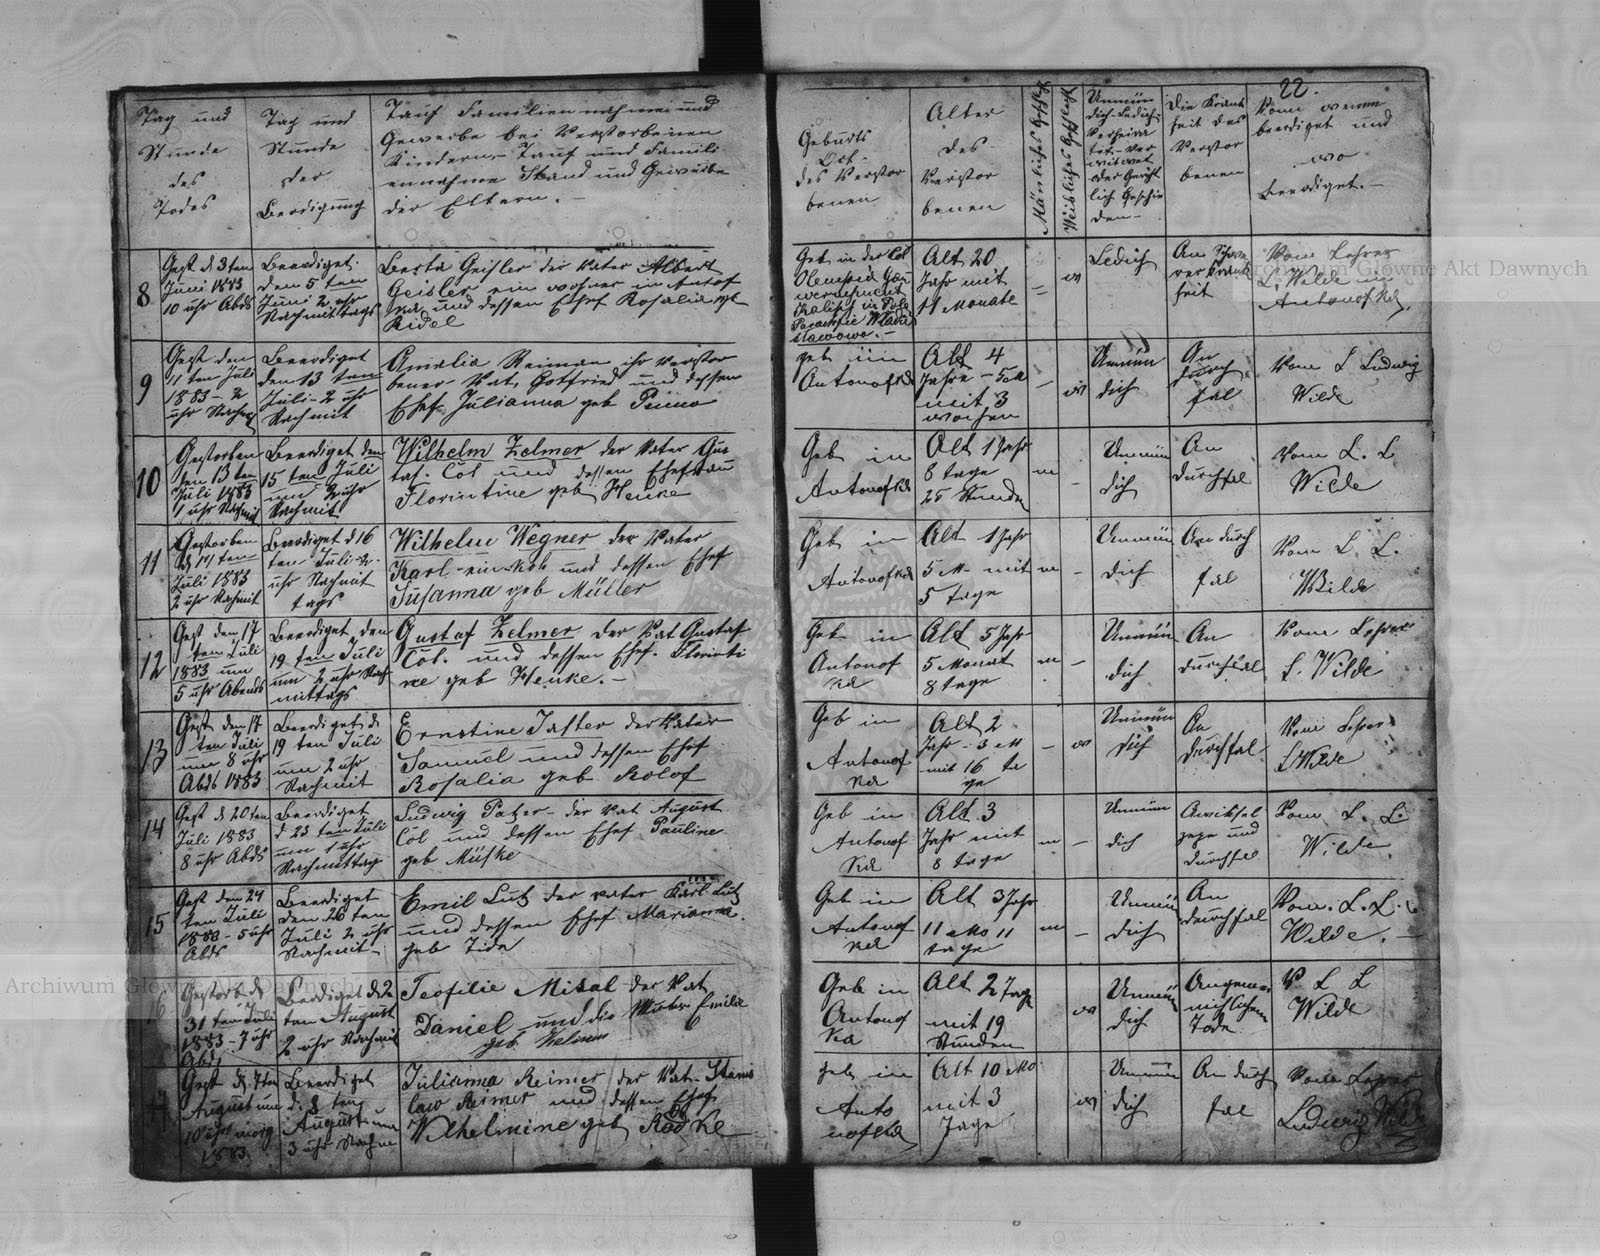 22.
Tag und
Stunde
des
Todes
Tag und
Stunde
der
Beerdigung
Tauf Familien nahme und
Gewerbe bei Verstorbenen
Kindern Tauf und Famili
ennahme Stand und Gewerbe
der Eltern.
Geburts
Ort
des Verstor
benen
Alter
des
Verstor
benen
Mänliches Geschlecht
Weibliches Geschlecht
Unmün
dich Ledich
Verheira
tet Ver
witwet
oder Gericht
lich Geschie
den
Die Krank
heit des
Verstor
benen
Vom wemm
beerdiget und
wo
Beerdiget.
8
Gest d 3 ten
Juni 1883
10 uhr Abds
Beerdiget
den 5 ten
Juni 2 uhr
Nachmittags
Berta Geisler der Vater Albert
Geisler ein wohner in Antof
ka und dessen Ehef Rosalia geb
Ridel
Geb in der Col
Kalisch in Pole
Alt 20
Jahr mit
11 Monate
w
Ledich
heit
Vom Lehrer
L. Wilde in
Antonofka
9
Gest den
11 ten Juli
1883 - 2
uhr Nachm
Beerdiget
den 13 ten
Juli - 2 uhr
Nachmit
Amalia Reiman ihr Verstor
bener Vat Gotfried und dessen
Ehef Julianna geb
geb im
Antonofka
Alt 4
Jahre - 5 M
mit 3
wochen
w
Unmün
dich
An
durch
fal
Vom L Ludwig
Wilde
10
Gestorben
den 13 ten
Juli 1883
1 uhr Nachmit
Beerdiget den
15 ten Juli
um 2 uhr
Nachmit
Wilhelm Zelmer der Vater Gus
taf Col und dessen Ehefrau
Florintine geb Henke
Geb in
Antonofka
Alt 1 Jahr
8 tage
25 Stunden
m
Unmün
dich
An
durchfal
Vom L. L
Wilde
11
Gestorben
d 14 ten
Juli 1883
2 uhr Nachmit
Beerdiget d 16
ten Juli 2
uhr Nachmit
tags
Wilhelm Wegner der Vater
Karl ein Kol und dessen Ehef
Susanna geb Müller
Geb in
Antonofka
Alt 1 Jahr
5 M mit
5 tage
m
Unmün
dich
An durch
fal
Vom L L.
Wilde
12
Gest den 17
ten Juli
1883 um
5 uhr Abends
Beerdiget den
19 ten Juli
um 2 uhr Nach
mittags
Gustaf Zelmer der Vat Gustaf
Col. und dessen Ehef. Florinti
ne geb Henke.
Geb in
Antonof
ka
Alt 5 Jahr
5 Monat
8 tage
m
Unmün
dich
An
durchfal
Vom Lehrer
L. Wilde
13
Gest den 17
ten Juli
um 8 uhr
Abds 1883
Beerdiget d
19 ten Juli
um 2 uhr
Nachmit
Ernstine Jaster der Vater
Samuel und dessen Ehef
Rosalia geb Rolof
Geb in
Antonof
ka
Alt 2
Jahr - 3 M
mit 16 ta
ge
w
Unmün
dich
An
durchfal
Vom Lehrer
L Wilde
14
Gest d 20 ten
Juli 1883
8 uhr Abds
Beerdiget
d 23 ten Juli
um 1 uhr
Nachmittag
Ludwig Patzer der Vat August
Col und dessen Ehef Pauline
geb Müske
Geb in
Antonof
ka
Alt 3
Jahr mit
8 tage
m
Unmün
dich
und
durchfal
Vom L. L.
Wilde
15
Gest den 24
ten Juli
1883 - 5 uhr
Abds
Beerdiget
den 26 ten
Juli 2 uhr
Nachmit
Emil Lutz der vater Karl Lutz
und dessen Ehef Marianna
geb Tida
Geb in
Antonof
ka
Alt 3 Jahr
11 Mo 11
tage
m
Unmün
dich
An
durchfal
Vom. L. L.
Wilde.
16
Gestorb d
31 ten Juli
1883 - 7 uhr
Abds
Beerdiget d 2
ten August
2 uhr Nachmit
Teofilie Misal der Vat
Daniel und die Mutter Emilie
geb. Zelmer
Geb in
Antonof
ka
Alt 2 Tage
mit 19
Stunden
w
Unmün
dich
Tode
V L L
Wilde
17
Gest d. 7 ten
August um
10 uhr morg
1883
Beerdiget
d. 8 ten
August um
3 uhr Nachm
Julianna Reimer der Vat Stanis
law Reimer und dessen Ehef
Wilhelmine geb Radke
geb in
Anto
nofka
Alt 10 Mo
mit 3
Tage
w
Unmün
dich
An durch
fal
Vom Lehrer
Ludwig Wilde
Archiwum Główne Akt Dawnych
Archiwum Główne Akt Dawnych